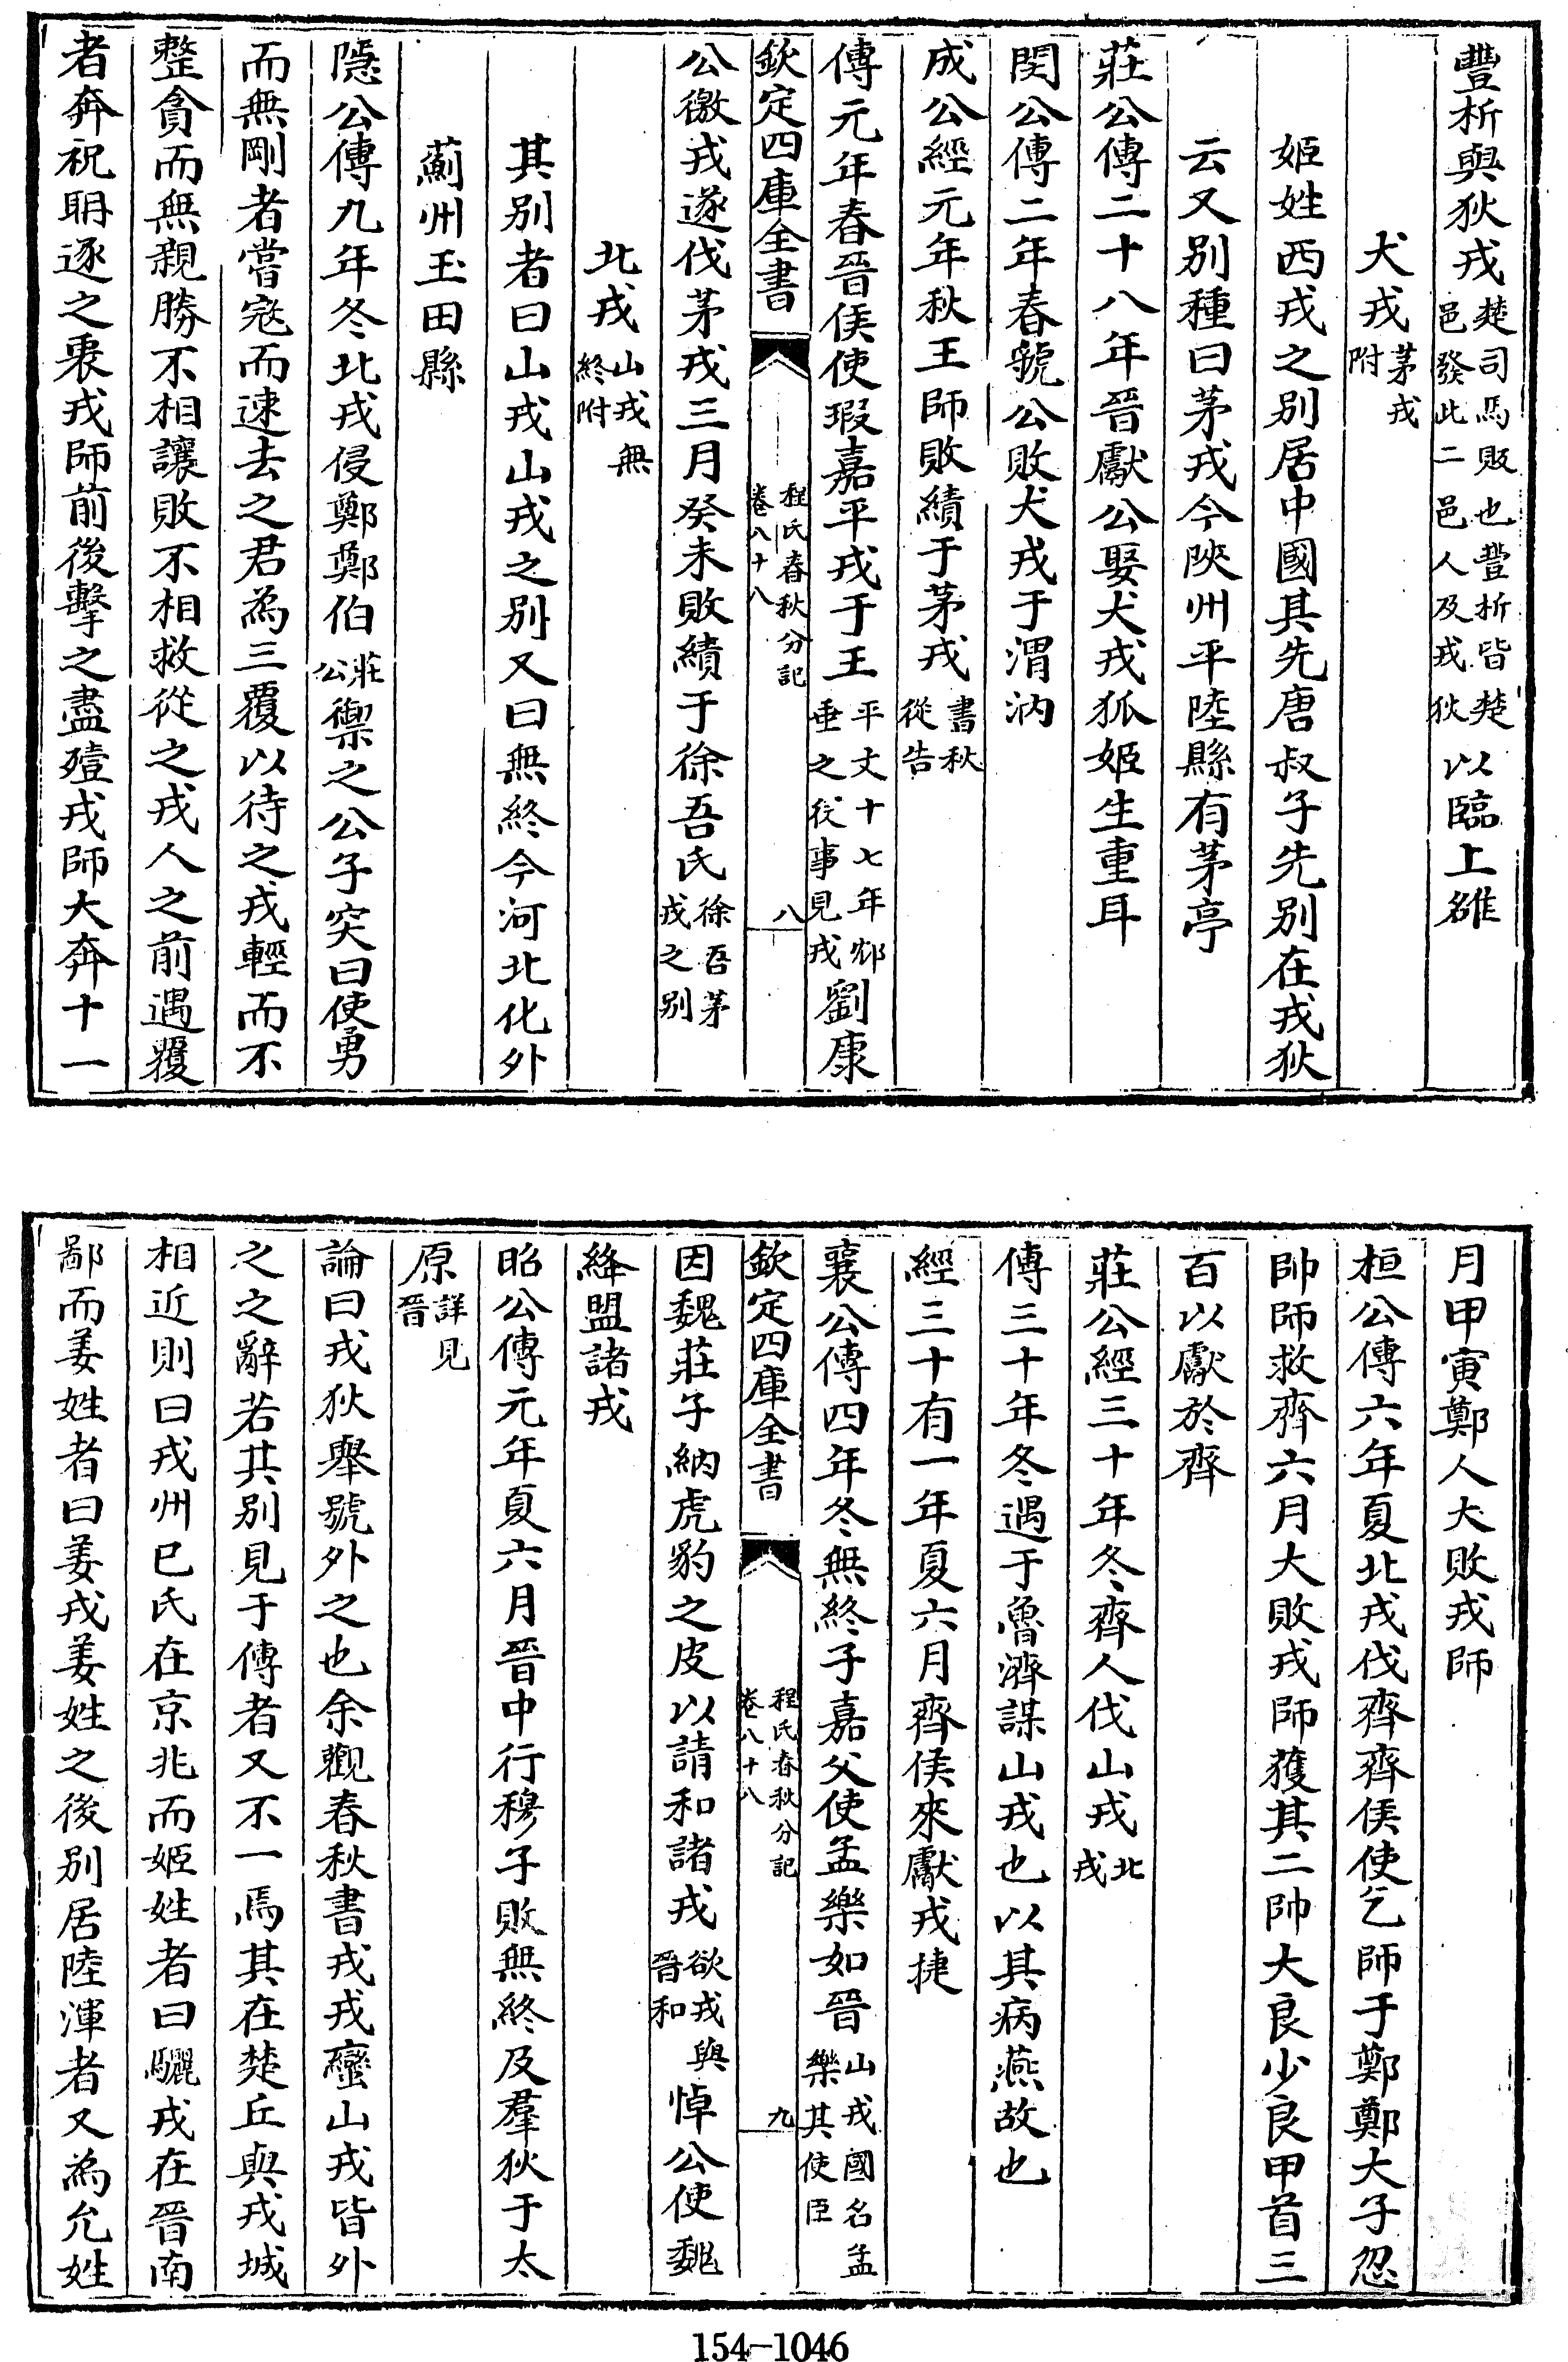 豐析與狄戎楚司馬販也豐析皆楚邑發此二邑人及戎狄以臨上雒
犬戎茅戎附
姬姓西戎之別居中國其先唐叔子先別在戎狄
云又別種曰茅戎今陜州平陸縣有茅亭
莊公傳二十八年晉獻公娶犬戎狐姬生重耳
閔公傳二年春虢公敗犬戎于渭汭
成公經元年秋王師敗績于茅戎書秋從告
傳元年春晉侯使瑕嘉平戎于王平文十七年邥垂之役事見戎劉康
欽定四庫全書
程氏春秋分記
卷八十八
八
公徼戎遂伐茅戎三月癸未敗績于徐吾氏徐吾茅戎之別
北戎山戎無終附
其別者曰山戎山戎之別又曰無終今河北化外
薊州玉田縣
隱公傳九年冬北戎侵鄭鄭伯莊公禦之公子突曰使勇
而無剛者嘗寇而速去之君為三覆以待之戎輕而不
整貪而無親勝不相讓敗不相救從之戎人之前遇覆
者奔祝聃逐之衷戎師前後擊之盡殪戎師大奔十一
月甲寅鄭人大敗戎師
桓公傳六年夏北戎伐齊齊侯使乞師于鄭鄭大子忽
帥師救齊六月大敗戎師獲其二帥大良少良甲首三
百以獻於齊
莊公經三十年冬齊人伐山戎北戎
傳三十年冬遇于魯濟謀山戎也以其病燕故也
經三十有一年夏六月齊侯來獻戎捷
襄公傳四年冬無終子嘉父使孟樂如晉山戎國名孟樂其使臣
欽定四庫全書
程氏春秋分記
卷八十八
九
因魏莊子納虎豹之皮以請和諸戎欲戎與晉和悼公使魏
絳盟諸戎
昭公傳元年夏六月晉中行穆子敗無終及羣狄于太
原詳見晉
論曰戎狄舉號外之也余觀春秋書戎戎蠻山戎皆外
之之辭若其別見于傳者又不一焉其在楚丘與戎城
相近則曰戎州已氏在京兆而姬姓者曰驪戎在晉南
鄙而姜姓者曰姜戎姜姓之後別居陸渾者又為允姓
154-1046